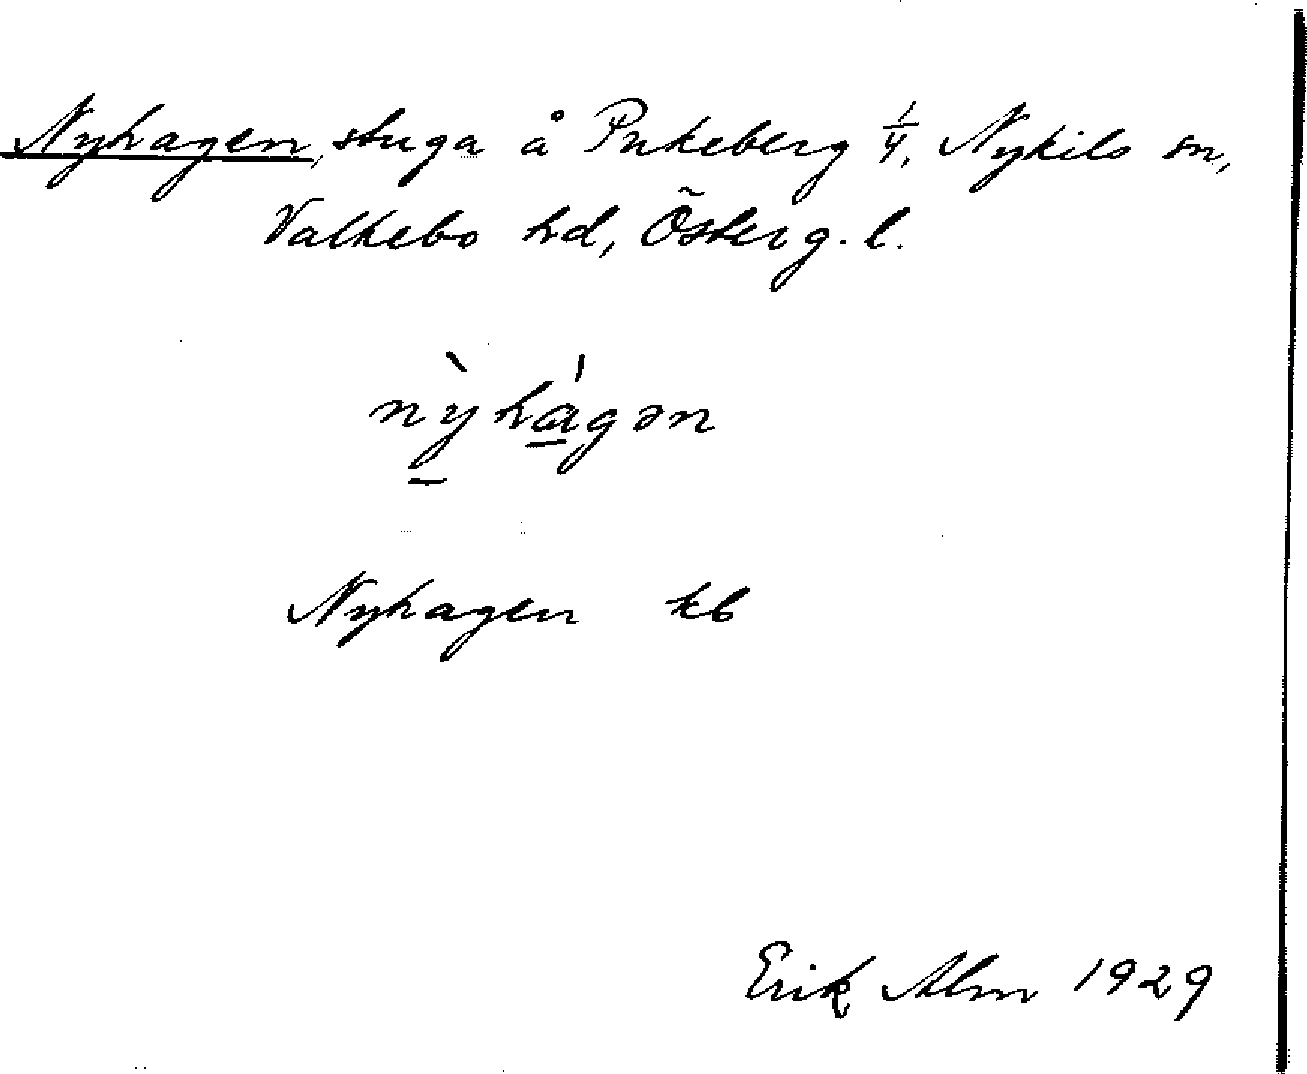 Nyhagen, stuga å Pukeberg 1/4, Nykils sn,
Valkebo hd, Österg. l.
nỳhágən
Nyhagen kb
Erik Alm 1929